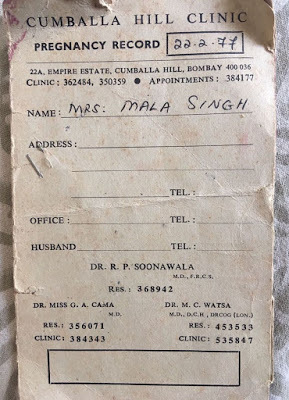 CUMBALLA HILL CLINIC
PREGNANCY RECORD 22-2-77
22A, EMPIRE ESTATE, CUMBALLA HILL, BOMBAY 400 036
CLINIC: 362484, 350359 ● APPOINTMENTS: 384177
NAME: MRS. MALA SINGH
ADDRESS:
TEL.:
OFFICE: TEL.:
HUSBAND TEL.:
DR. R. P. SOONAWALA
M.D., F.R.C.S.
RES.: 368942
DR. MISS G. A. CAMA
M.D.
RES.: 356071
CLINIC: 384343
DR. M. C. WATSA
M.D., D.C.H., DRCOG (LON.)
RES.: 453533
CLINIC: 535847